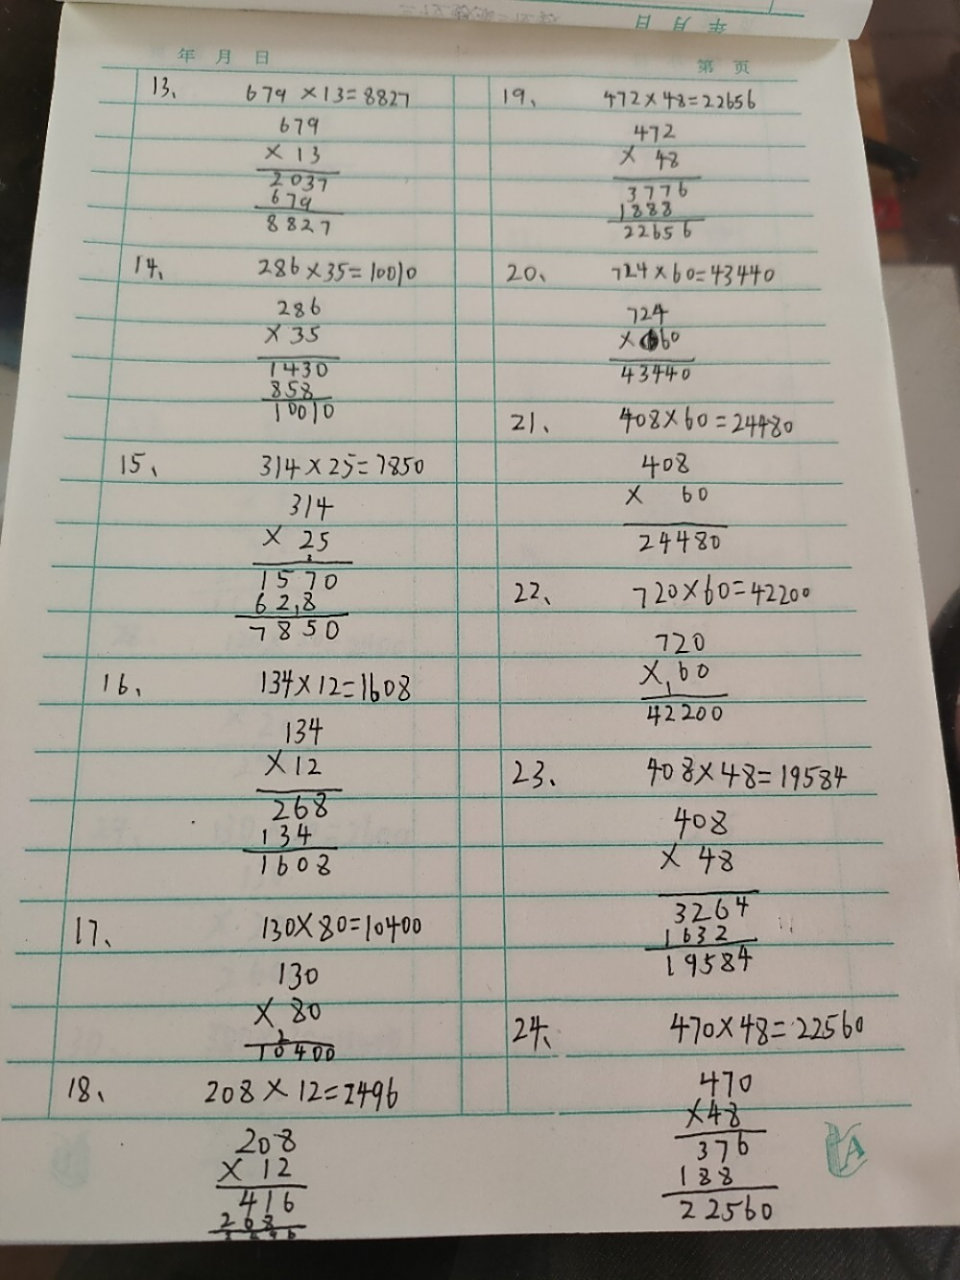 年 月 日
年 月 日
第 页
13、 679×13=8827
679
× 13
2037
679
8827
14、 286×35=10010
286
×35
1430
858
10010
15、 314×25=7850
314
× 25
1570
628
7850
16、 134×12=1608
134
×12
268
134
1608
17、 130×80=10400
130
× 80
2
10400
18、 208×12=2496
208
× 12
416
19、 472×48=22656
472
× 48
3776
1888
22656
20、 724×60=43440
724
× 60
43440
21、 408×60=24480
408
× 60
24480
22、 720×60=42200
720
× 60
1
42200
23、 408×48=19584
408
× 48
3264
1632
19584
24、 470×48=22560
470
×48
376
188
22560
A